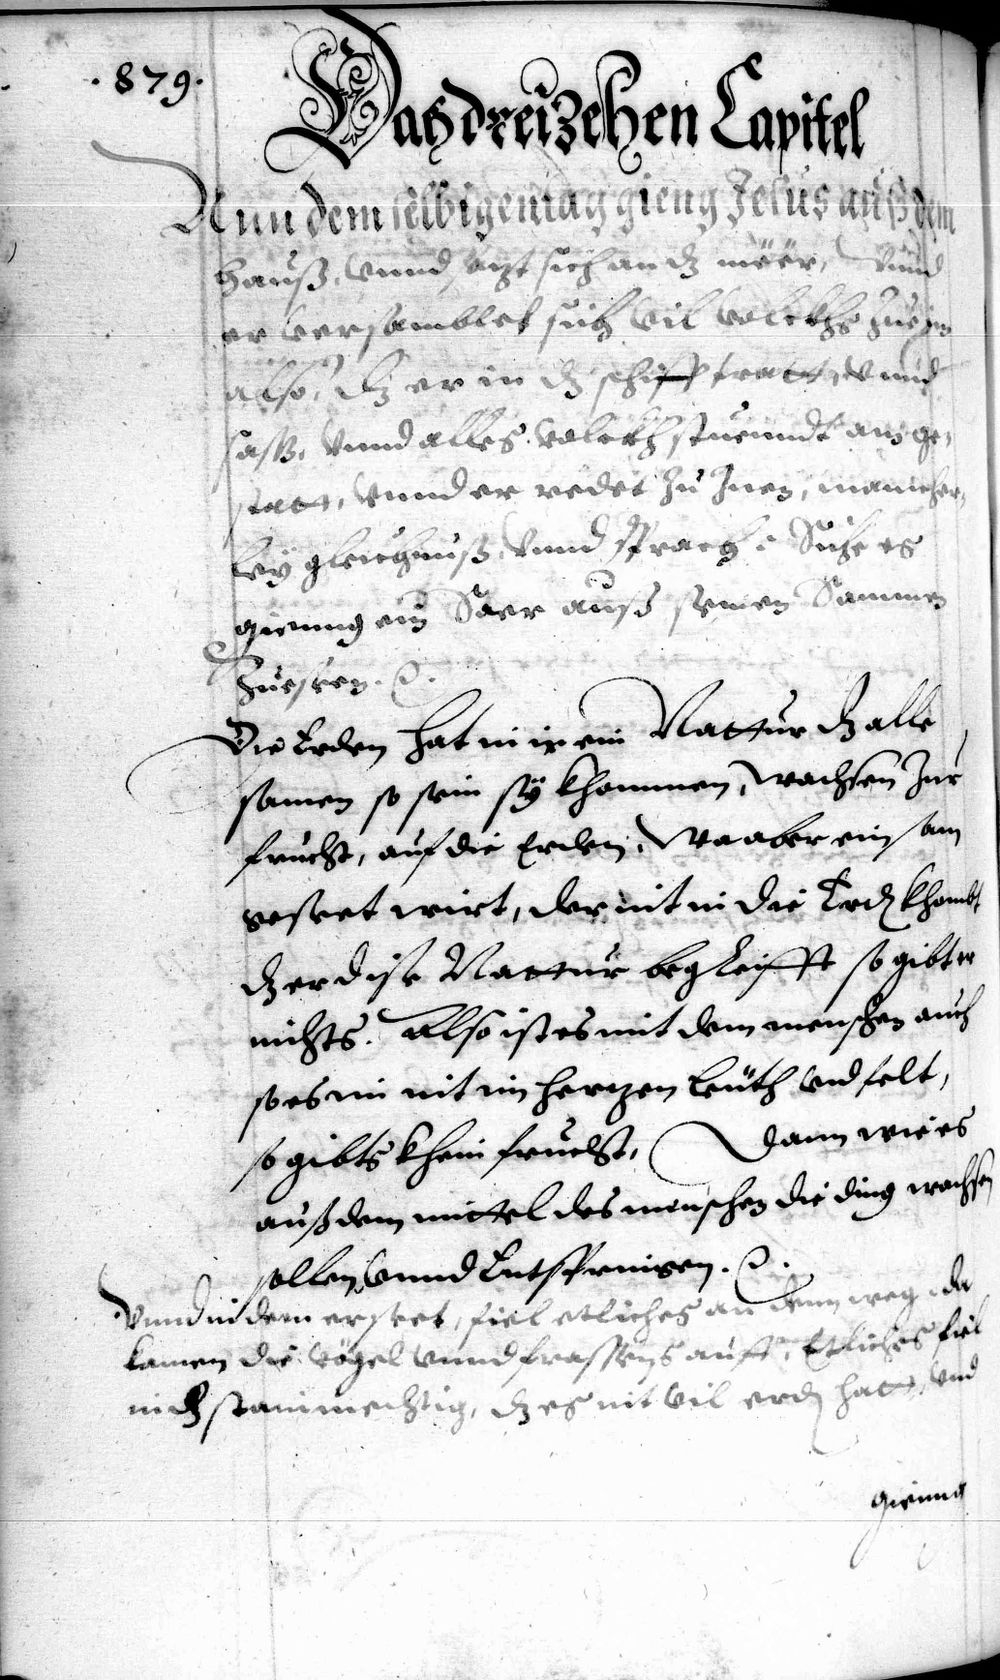 . 879 .
Das dreizehen Capitel
Ann dem selbigen tag gieng Jesus auß dem
hauß, vnnd sazt sich an dz möër, vnnd
er versamblet sich vil volckhs zue jm
also, dz er in dz schiff tratt, vnnd
saß, vnnd alles volckh stuenndt am ge,
statt, vnnd er redet zu Jnen, mancher,
leÿ gleichnuß, vnnd sprach : Siche es
gienng ein Säer auß seinen Sammen
zueseen. &.
Die Erden hat in ir ein Nattur dz alle
samen so sein sÿ khommen, wachsen zur
frucht, auf die Erden, Wa aber ein sam
geseet wirt, der nit in die Erd khombt
dz er dise Nattur begreifft so gibt er
nichts. Also ist es mit dem menschen auch
so es im nit im hertzen leüth vnd felt,
so gibts khein frucht, Dann wie es
auß dem mittel des menschen die ding wachsen
sollen, vnnd Entspringen. &.
Vnnd in dem er seet, fiel etliches an denn weg, da
kamen die vögel vnnd frassens auff, Etliches fiel
in dz stainnechtig, dz es nit vil erd hatt, vnd
gienng